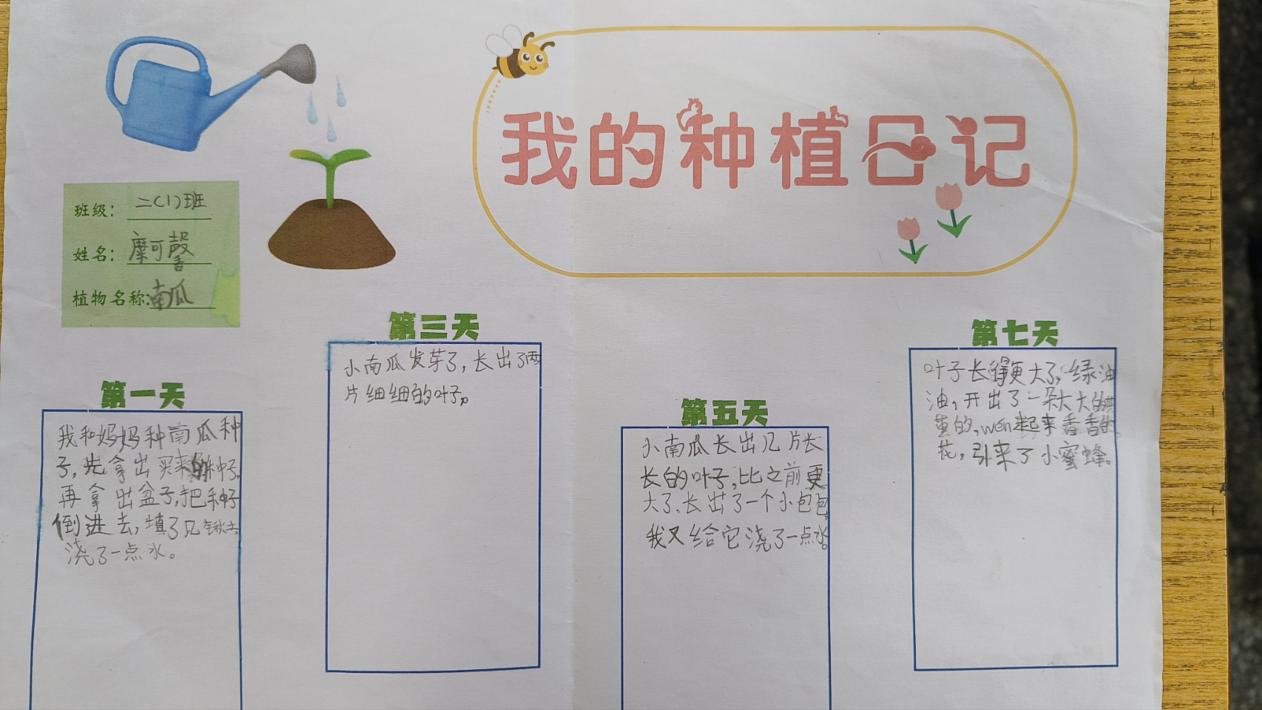 我的种植日记
班级：二（1）班
姓名：摩可馨
植物名称：南瓜
第一天
我和妈妈种南瓜种
子，先拿出买来的种子，
再拿出盆子，把种子
倒进去，填了几
浇了一点水。
第三天
小南瓜发芽了，长出了两
片细细的叶子。
第五天
小南瓜长出几片长
长的叶子，比之前更
大了、长出了一个小包包，
我又给它浇了一点水。
第七天
叶子长得更大了，绿油
油，开出了一朵大大的
黄的，wén起来香香的
花，引来了小蜜蜂。